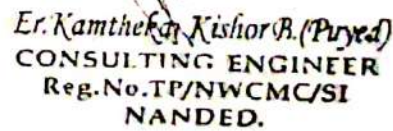 Er. Kamthekar Kishor B. (Puyed)
CONSULTING ENGINEER
Reg.No.TP/NWCMC/SI
NANDED.